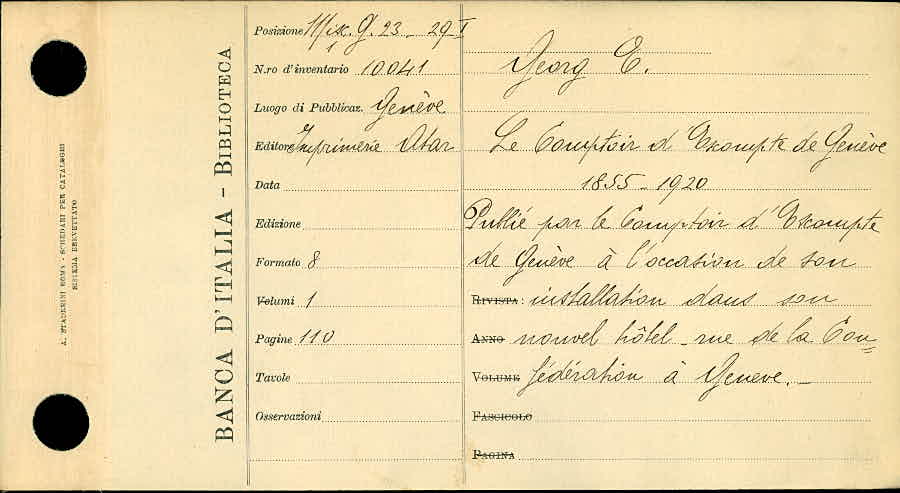 A. STADERINI ROMA - SCHEDARI PER CATALOGHI
SISTEMA BREVETTATO
BANCA D'ITALIA - BIBLIOTECA
Posizione Misc. G. 23 - 29 I
N.ro d'inventario 10041
Luogo di Pubblicaz. Genève
Editore Imprimerie Atar
Data
Edizione
Formato 8
Volumi 1
Pagine 110
Tavole
Osservazioni
Georg E.
Le Comptoir d'Escompte de Genève
1855 - 1920
Publié par le Comptoir d'Escompte
de Genève à l'occasion de son
RIVISTA: installation dans son
ANNO nouvel hôtel - rue de la Con=
VOLUME fédération à Geneve. -
FASCICOLO
PAGINA